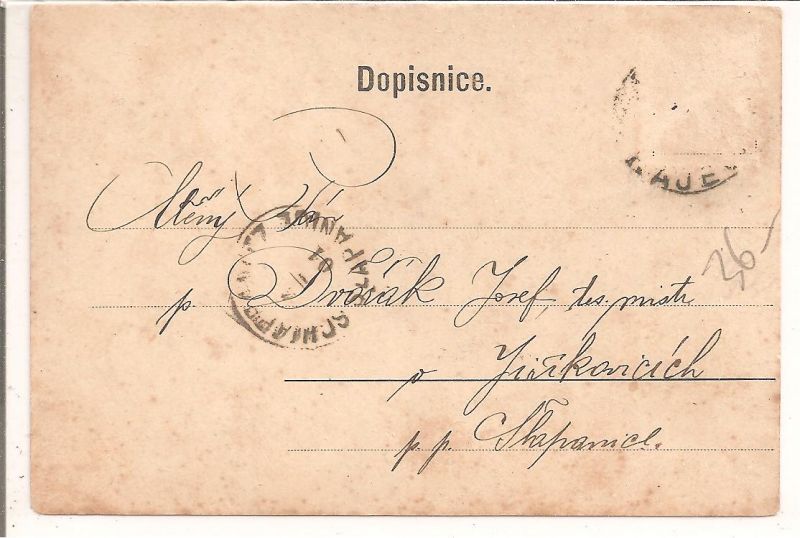 Dopisnice.
Pán
p. Dvořák Josef, tes. mistr
v Jiříkovicích
p. p. Šlapanice.
36-
SCHLAPANITZ
ŠLAPANICE
01